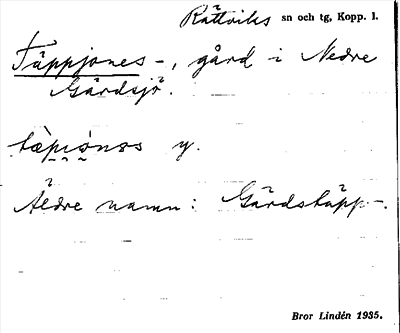 Rättviks sn och tg, Kopp. l.
Täppjones -, gård i Nedre
Gärdsjö.
y.
Äldre namn: Gärdstäpp-.
Bror Lindén 1935.